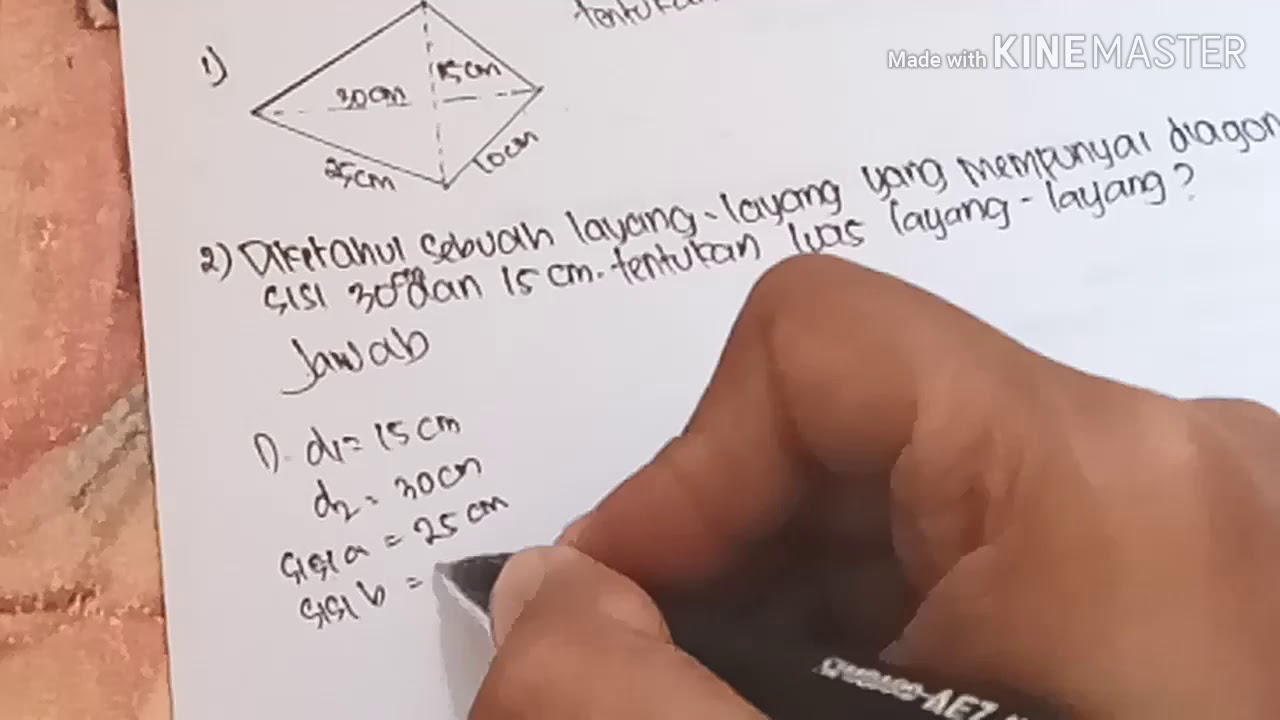 tentukan
Made with KINEMASTER
1)
15 cm
30cm
25cm
10cm
2) Diketahui sebuah layang-layang yang mempunyai diagon
sisi 30cm dan 15 cm. tentukan luas layang-layang?
Jawab
1). d1 = 15 cm
d2 = 30cm
sisi a = 25 cm
sisi b =